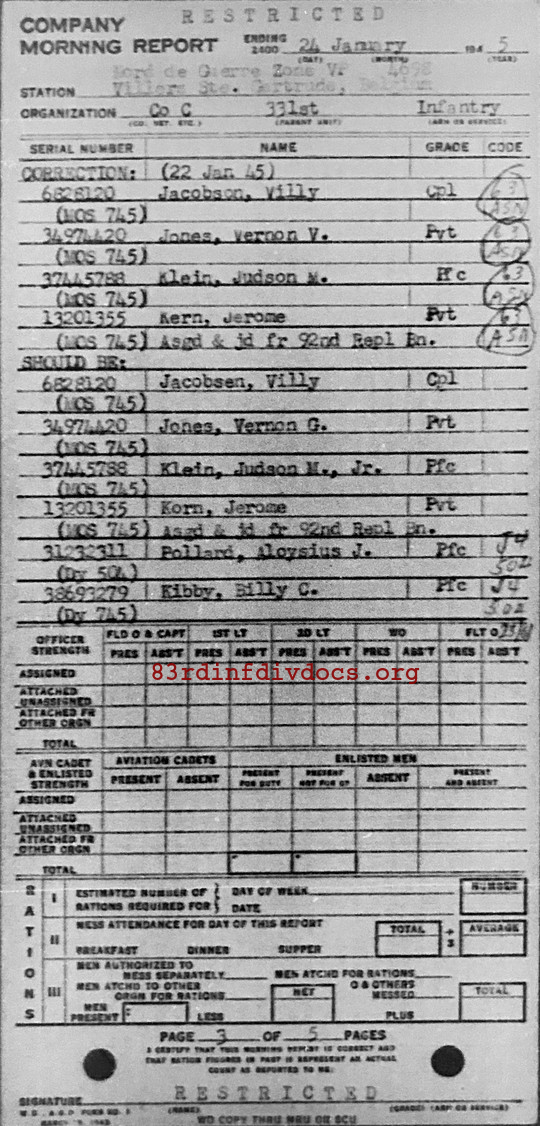 RESTRICTED
COMPANY
MORNING REPORT ENDING 2400 24 January 194 5
(DAY) (MONTH) (YEAR)
Nord de Guerre Zone VP
STATION Villers Ste. Gertrude, Belgium
ORGANIZATION Co C 331st Infantry
(CO. DET. ETC.) (PARENT UNIT) (ARM OR SERVICE)
SERIAL NUMBER NAME GRADE CODE
CORRECTION: (22 Jan 45)
6828120 Jacobson, Villy Cpl 63
(MOS 745) ASN
34974420 Jones, Vernon V. Pvt 63
(MOS 745) ASN
37445788 Klein, Judson M. Pfc 63
(MOS 745) ASN
13201355 Kern, Jerome Pvt 63
(MOS 745) Asgd & jd fr 92nd Repl Bn. ASN
SHOULD BE:
6828120 Jacobsen, Villy Cpl
(MOS 745)
34974420 Jones, Vernon G. Pvt
(MOS 745)
37445788 Klein, Judson M., Jr. Pfc
(MOS 745)
13201355 Korn, Jerome Pvt
(MOS 745) Asgd & jd fr 92nd Repl Bn.
31232311 Pollard, Aloysius J. Pfc J4
(Dy 504) 504
38693279 Kibby, Billy C. Pfc J4
(Dy 745) 502
OFFICER STRENGTH FLD O & CAPT 1ST LT 2D LT WO FLT O
PRES ABS'T PRES ABS'T PRES ABS'T PRES ABS'T PRES ABS'T
ASSIGNED
83rdinfdivdocs.org
ATTACHED UNASSIGNED
ATTACHED FR OTHER ORGN
TOTAL
AVN CADET & ENLISTED STRENGTH AVIATION CADETS ENLISTED MEN
PRESENT ABSENT PRESENT FOR DUTY PRESENT NOT FOR DY ABSENT PRESENT AND ABSENT
ASSIGNED
ATTACHED UNASSIGNED
ATTACHED FR OTHER ORGN
TOTAL
RATIONS
I ESTIMATED NUMBER OF RATIONS REQUIRED FOR DAY OF WEEK DATE NUMBER
II MESS ATTENDANCE FOR DAY OF THIS REPORT TOTAL ÷ 3 AVERAGE
BREAKFAST DINNER SUPPER
III MEN AUTHORIZED TO MESS SEPARATELY MEN ATCHD FOR RATIONS
MEN ATCHD TO OTHER ORGN FOR RATIONS NET O & OTHERS MESSED TOTAL
MEN PRESENT LESS PLUS
PAGE 3 OF 5 PAGES
I CERTIFY THAT THIS MORNING REPORT IS CORRECT AND
THAT RATION FIGURES IN PART III REPRESENT AN ACTUAL
COUNT AS REPORTED TO ME:
RESTRICTED
SIGNATURE
(NAME) (GRADE) (ARM OR SERVICE)
W.D., A.G.O. FORM NO. 1
MARCH 1943
WD COPY THRU MRU OR SCU